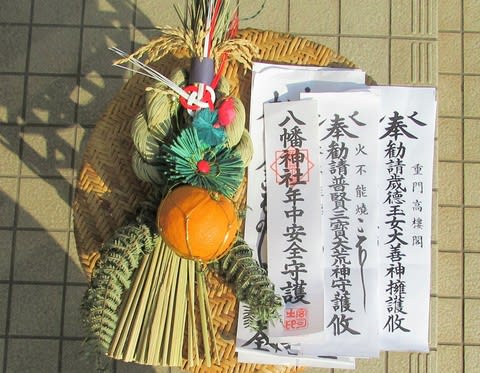 重門高樓閣
奉勸請歳德玉女大善神擁護攸
火不能燒
奉勸請普賢三寶大荒神守護攸
八幡神社年中安全守護